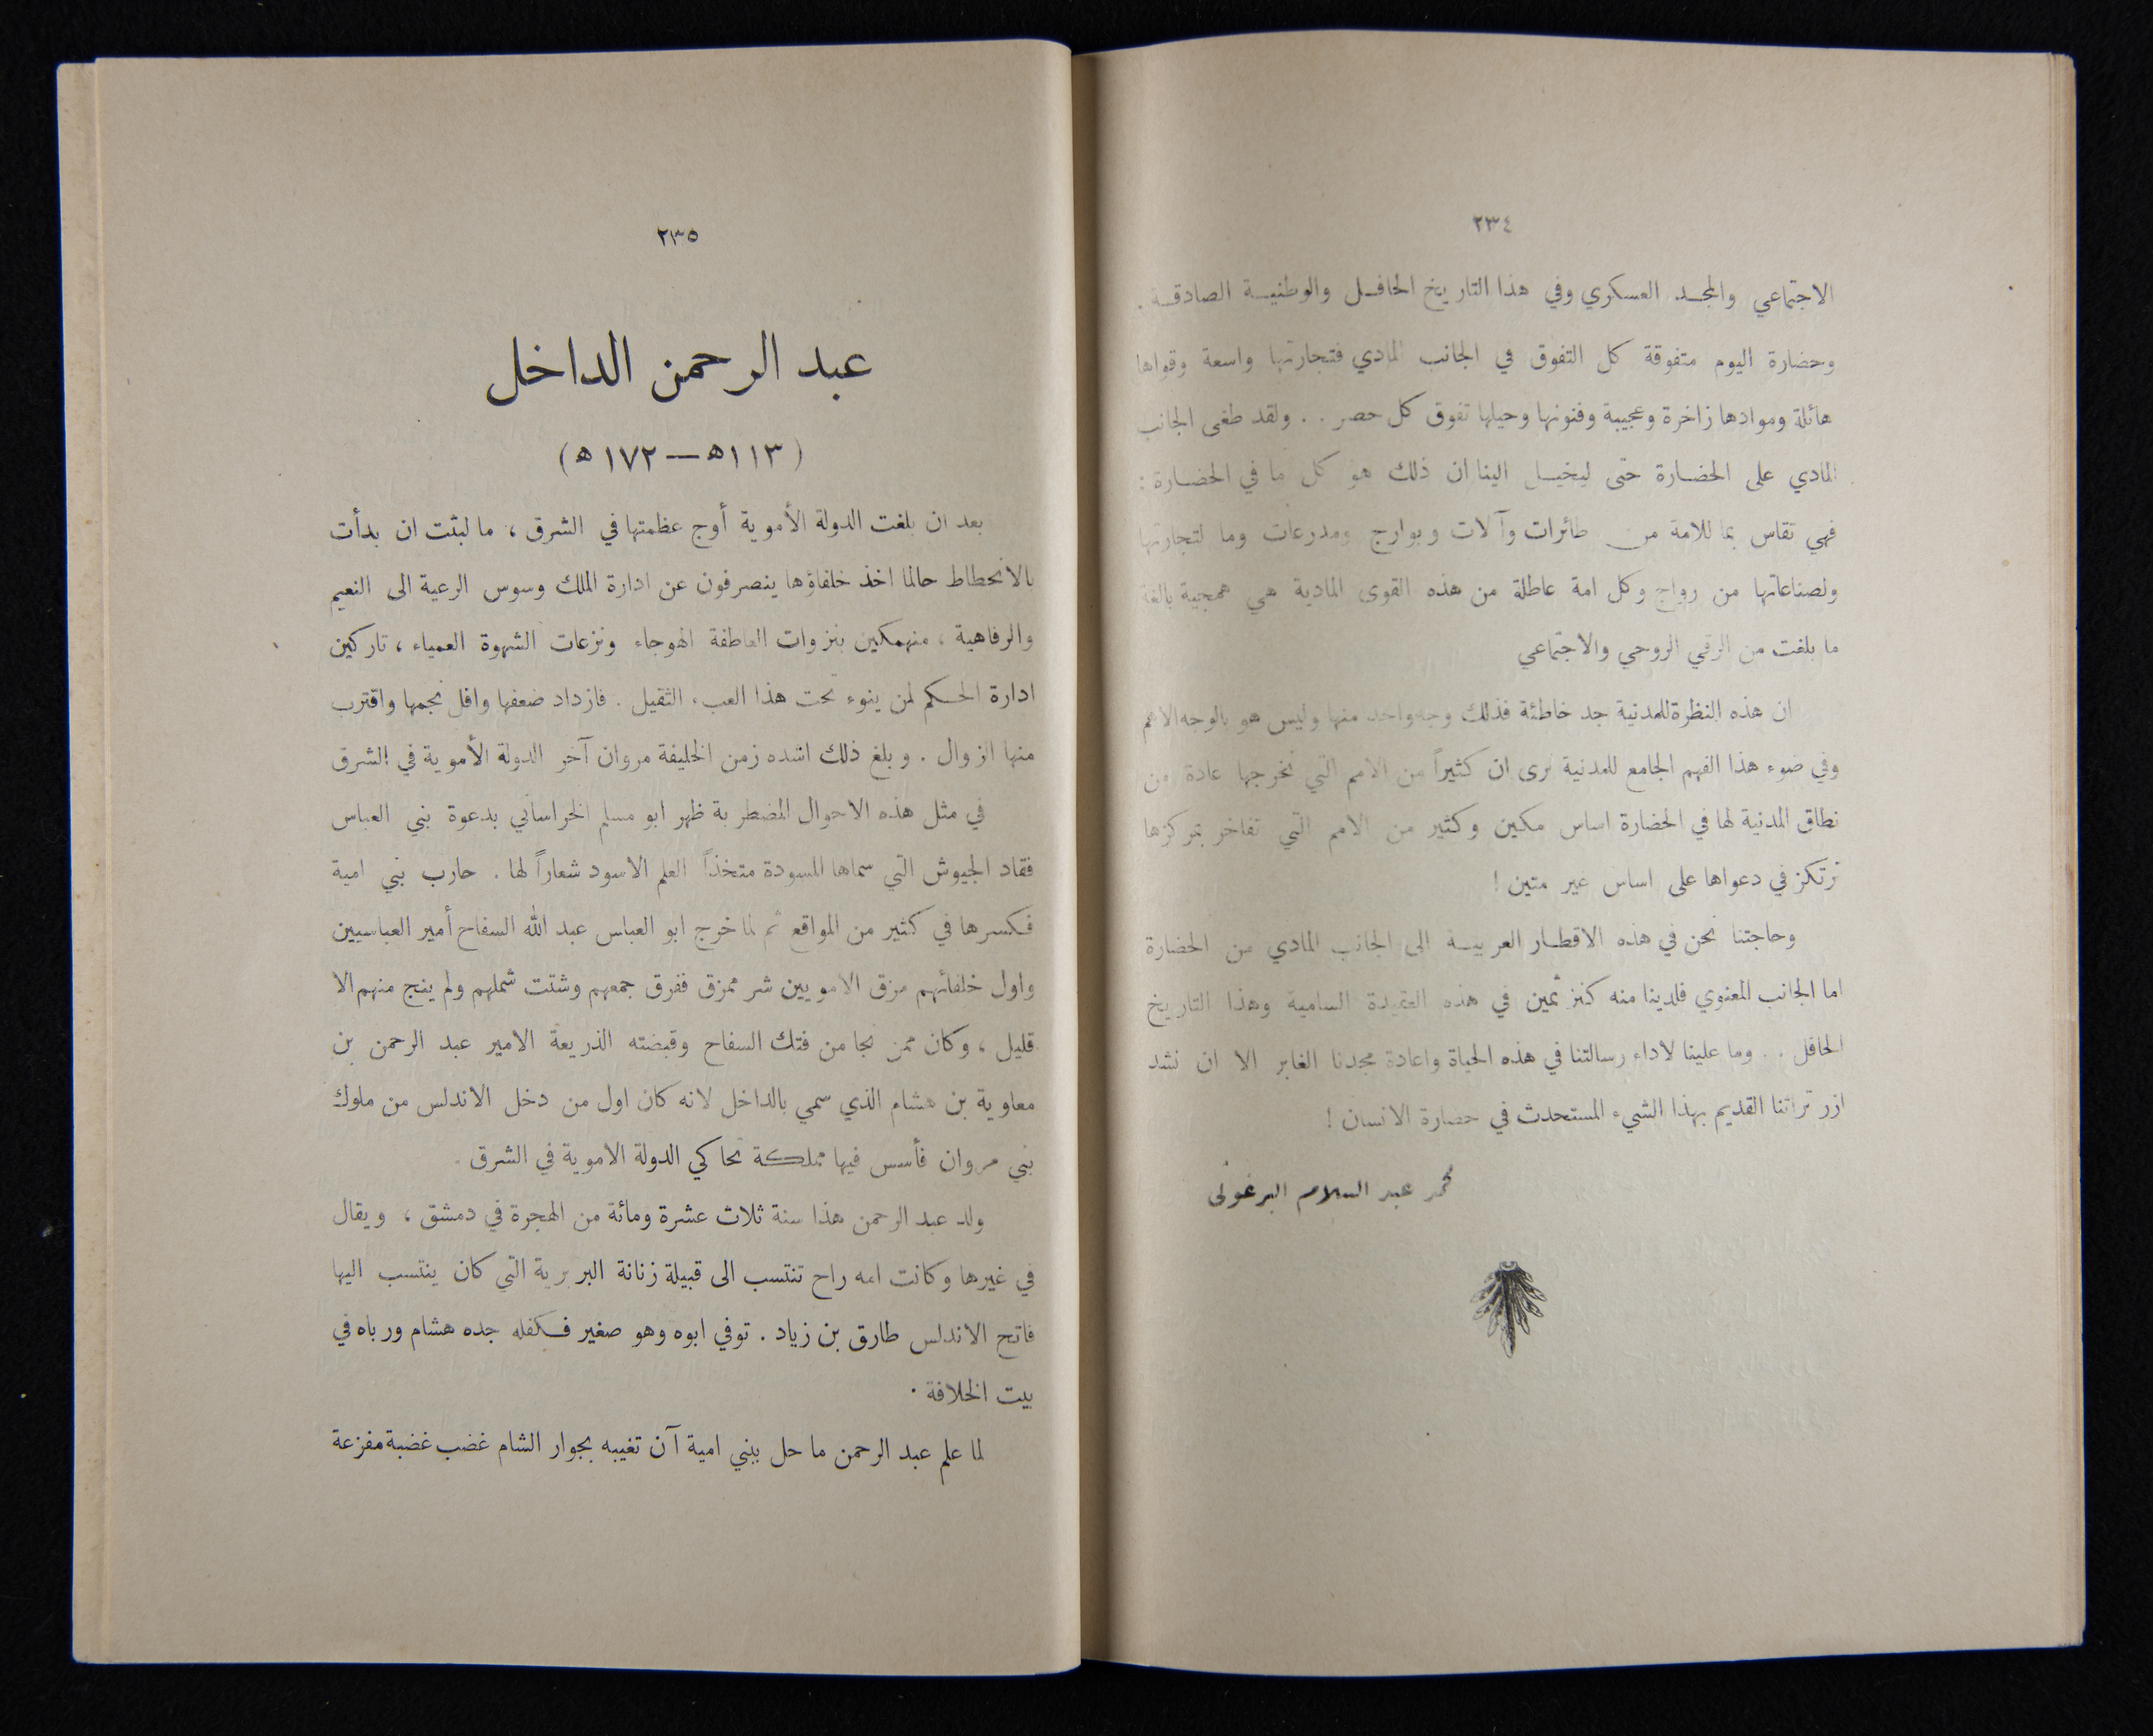 ٢٣٤
الاجتماعي والمجد العسكري وفي هذا التاريخ الحافل والوطنية الصادقة .
وحضارة اليوم متفوقة كل التفوق في الجانب المادي فتجارتها واسعة وقواها
هائلة وموادها زاخرة وعجيبة وفنونها وحيلها تفوق كل حصر . . ولقد طغى الجانب
المادي على الحضارة حتى ليخيل الينا ان ذلك هو كل ما في الحضارة :
فهي تقاس بما للامة من طائرات وآلات وبوارج ومدرعات وما لتجارتها
ولصناعاتها من رواج وكل امة عاطلة من هذه القوى المادية هي همجية بالغة
ما بلغت من الرقي الروحي والاجتماعي
ان هذه النظرة للمدنية جد خاطئة فذلك وجه واحد منها وليس هو بالوجه الاهم
وفي ضوء هذا الفهم الجامع للمدنية نرى ان كثيراً من الامم التي نخرجها عادة من
نطاق المدنية لها في الحضارة اساس مكين وكثير من الامم التي تفاخر بمركزها
ترتكز في دعواها على اساس غير متين !
وحاجتنا نحن في هذه الاقطار العربية الى الجانب المادي من الحضارة
اما الجانب المعنوي فلدينا منه كنز ثمين في هذه العقيدة السامية وهذا التاريخ
الحافل . . وما علينا لاداء رسالتنا في هذه الحياة واعادة مجدنا الغابر الا ان نشد
ازر تراثنا القديم بهذا الشيء المستحدث في حضارة الانسان !
محمد عبد السلام البرغوثي
٢٣٥
عبد الرحمن الداخل
( ١١٣ﻫ — ١٧٢ ﻫ )
بعد ان بلغت الدولة الأموية أوج عظمتها في الشرق ، ما لبثت ان بدأت
بالانحطاط حالما اخذ خلفاؤها ينصرفون عن ادارة الملك وسوس الرعية الى النعيم
والرفاهية ، منهمكين بنزوات العاطفة الهوجاء ونزعات الشهوة العمياء ، تاركين
ادارة الحكم لمن ينوء تحت هذا العبء الثقيل . فازداد ضعفها وافل نجمها واقترب
منها الزوال . وبلغ ذلك اشده زمن الخليفة مروان آخر الدولة الأموية في الشرق
في مثل هذه الاحوال المضطربة ظهر ابو مسلم الخراساني بدعوة بني العباس
فقاد الجيوش التي سماها المسودة متخذاً العلم الاسود شعاراً لها . حارب بني امية
فكسرها في كثير من المواقع ثم لما خرج ابو العباس عبد الله السفاح أمير العباسيين
واول خلفائهم مزق الامويين شر ممزق ففرق جمعهم وشتت شملهم ولم ينج منهم الا
قليل ، وكان ممن نجا من فتك السفاح وقبضته الذريعة الامير عبد الرحمن بن
معاوية بن هشام الذي سمي بالداخل لانه كان اول من دخل الاندلس من ملوك
بني مروان فأسس فيها مملكة تحاكي الدولة الاموية في الشرق .
ولد عبد الرحمن هذا سنة ثلاث عشرة ومائة من الهجرة في دمشق ، ويقال
في غيرها وكانت امه راح تنتسب الى قبيلة زنانة البربرية التي كان ينتسب اليها
فاتح الاندلس طارق بن زياد . توفي ابوه وهو صغير فكفله جده هشام ورباه في
بيت الخلافة .
لما علم عبد الرحمن ما حل ببني امية آن تغيبه بجوار الشام غضب غضبة مفزعة